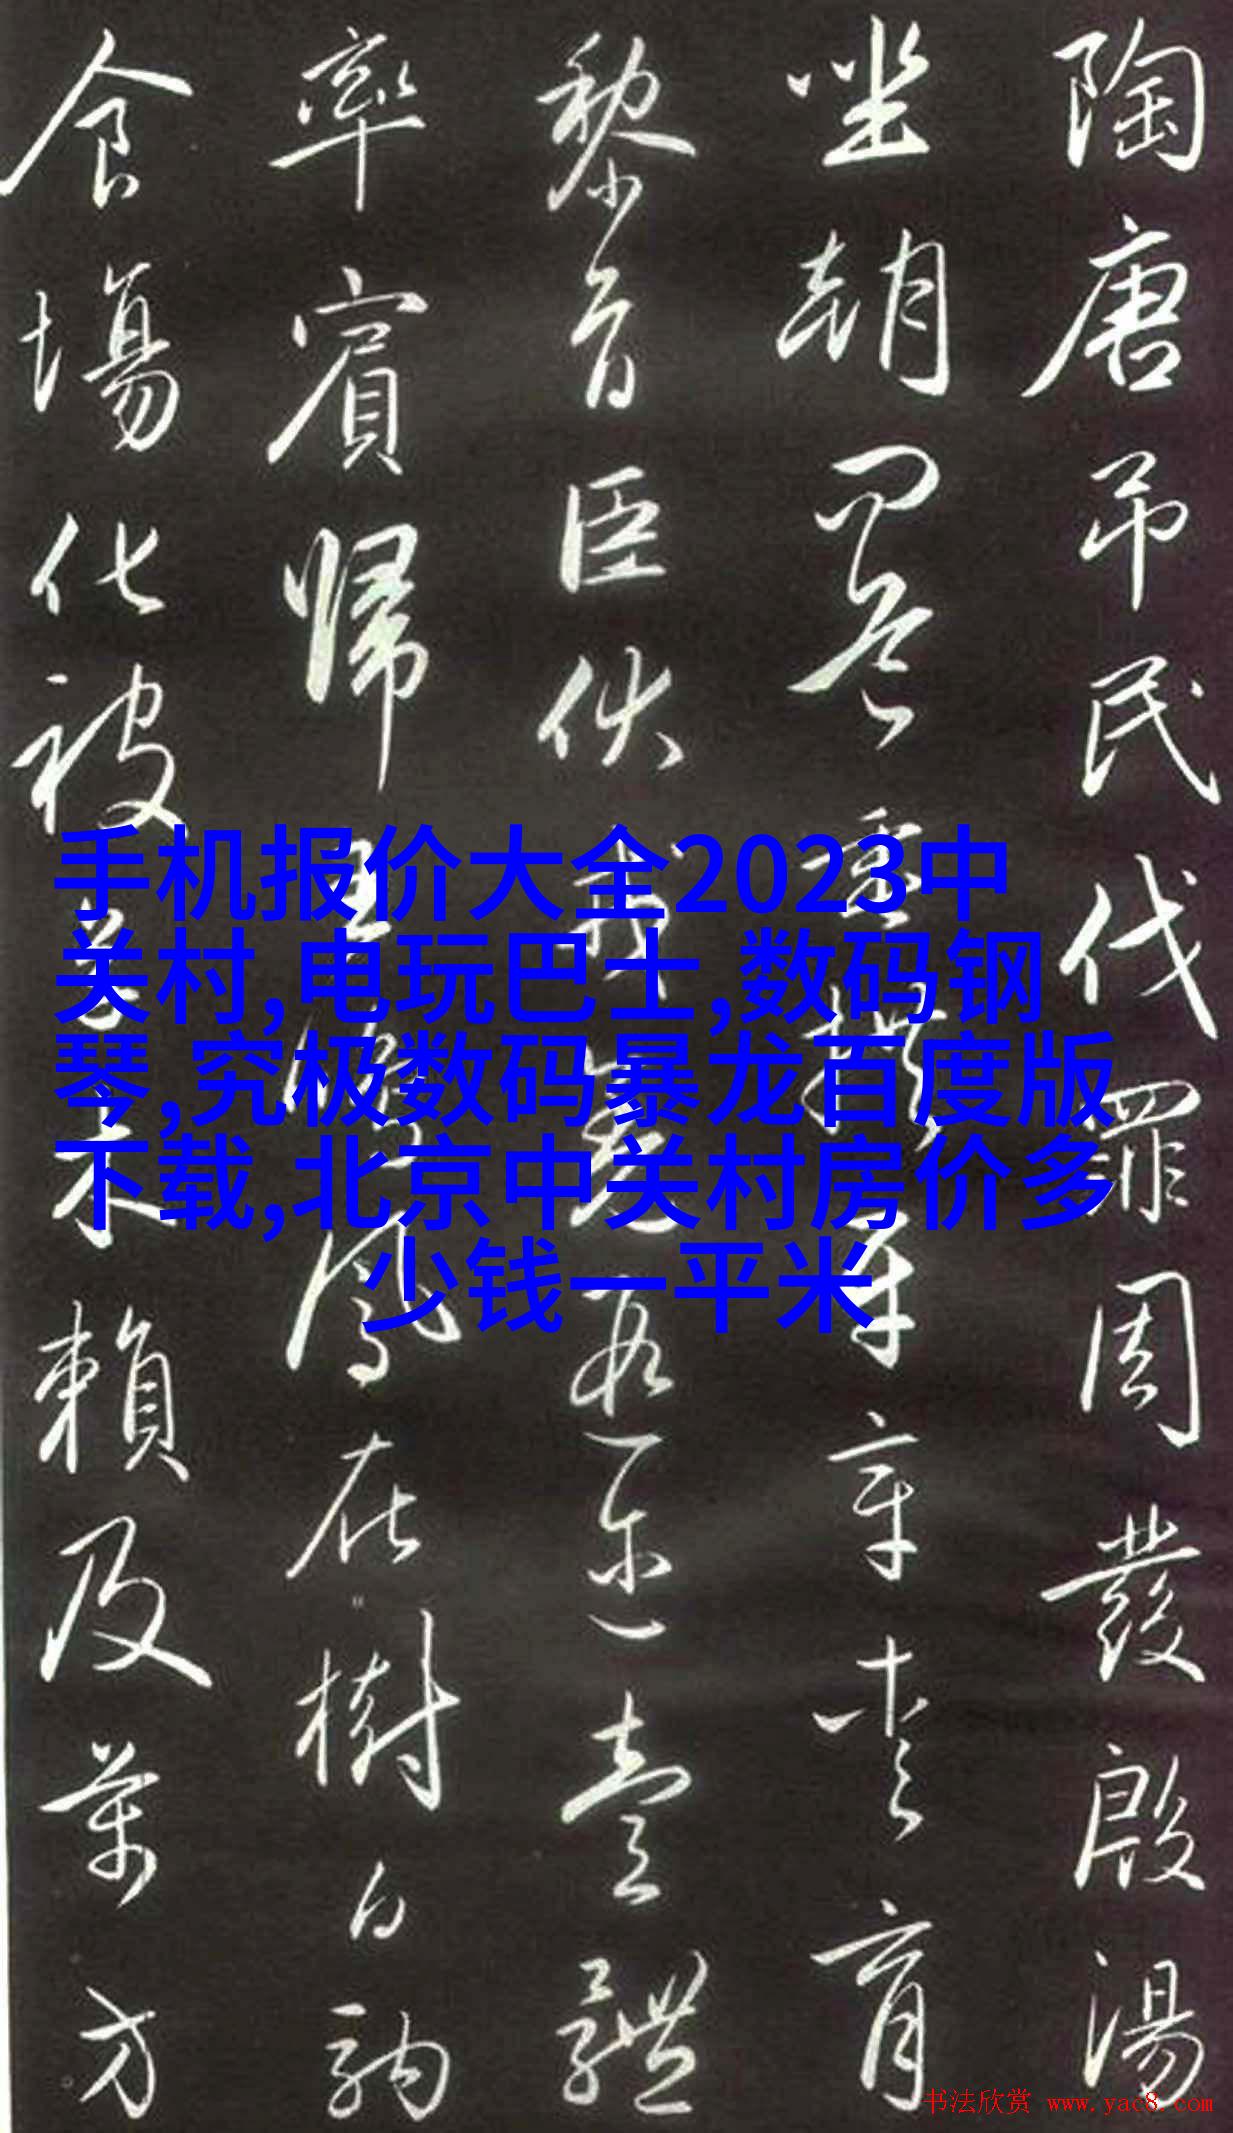 陶唐吊民伐罪周發殷湯
坐朝問道垂拱平章愛育
黎首臣伏戎羌遐邇壹體
率賓歸王鳴鳳在樹白駒
食場化被草木賴及萬方
手机报价大全2023中
关村,电玩巴士,数码钢
琴,究极数码暴龙百度版
下载,北京中关村房价多
少钱一平米
书法欣赏 www.yac8.com